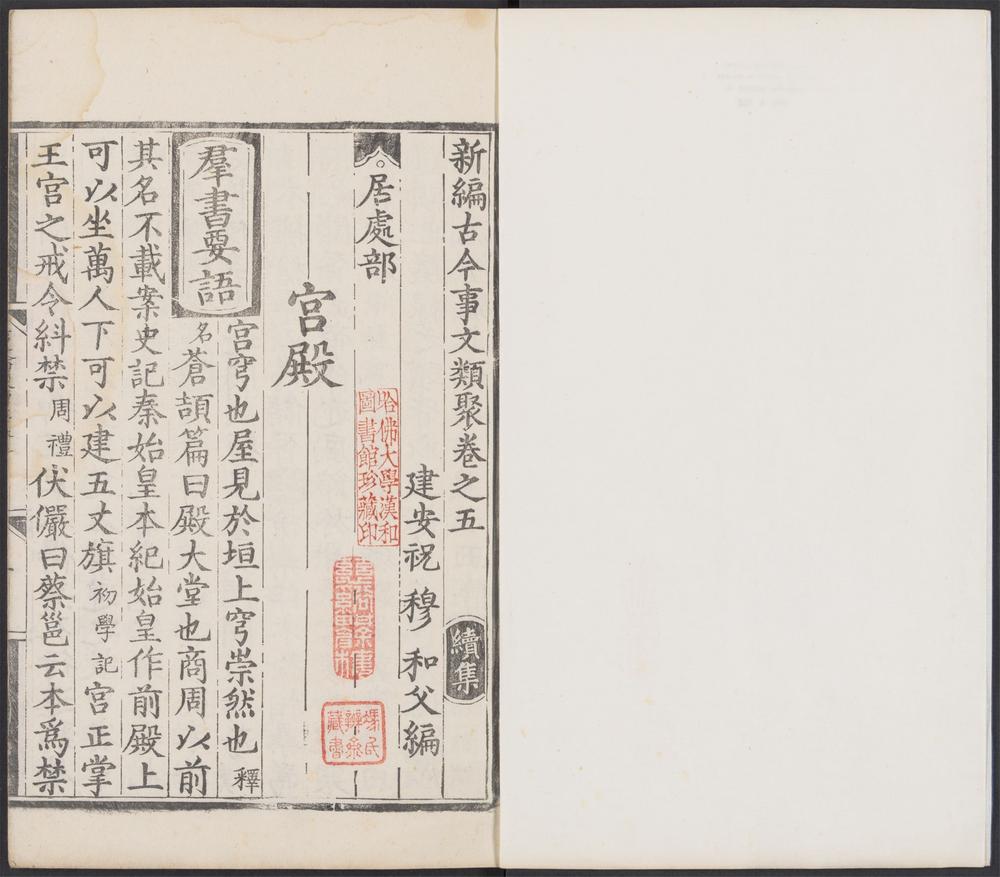 新編古今事文類聚卷之五
續集
建安祝 穆 和父編
哈佛大學漢和
圖書館珍藏印
居處部
宮殿
羣書要語
宮穹也屋見於垣上穹崇然也釋
名蒼頡篇曰殿大堂也商周以前
其名不載案史記秦始皇本紀始皇作前殿上
可以坐萬人下可以建五丈旗初學記宮正掌
王宮之戒令糾禁周禮伏儼曰蔡邕云本爲禁